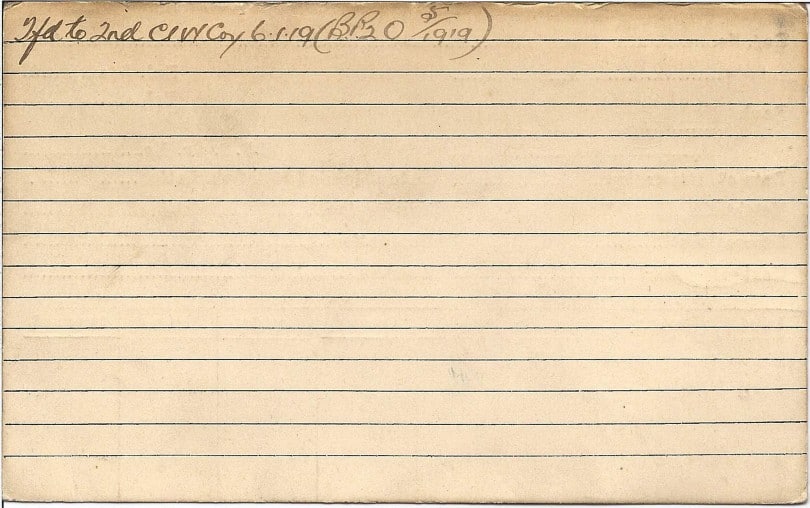 Tfd to 2nd CIW Coy 6.1.19 (B.P.2 O 5/1919)